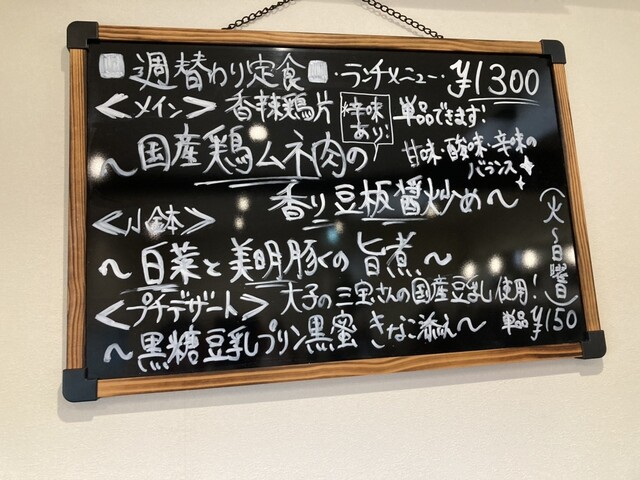 週替わり定食 ・ランチメニュー・ ¥1300
<メイン> 香辣鶏片 辛味あり! 単品できます!
〜国産鶏ムネ肉の 甘味・酸味・辛味のバランス
香り豆板醤炒め〜
<小鉢> (火〜日曜日)
〜白菜と美明豚の旨煮〜
<プチデザート> 大子の三宝さんの国産豆乳使用!
〜黒糖豆乳プリン黒蜜きなこ添え〜 単品¥150